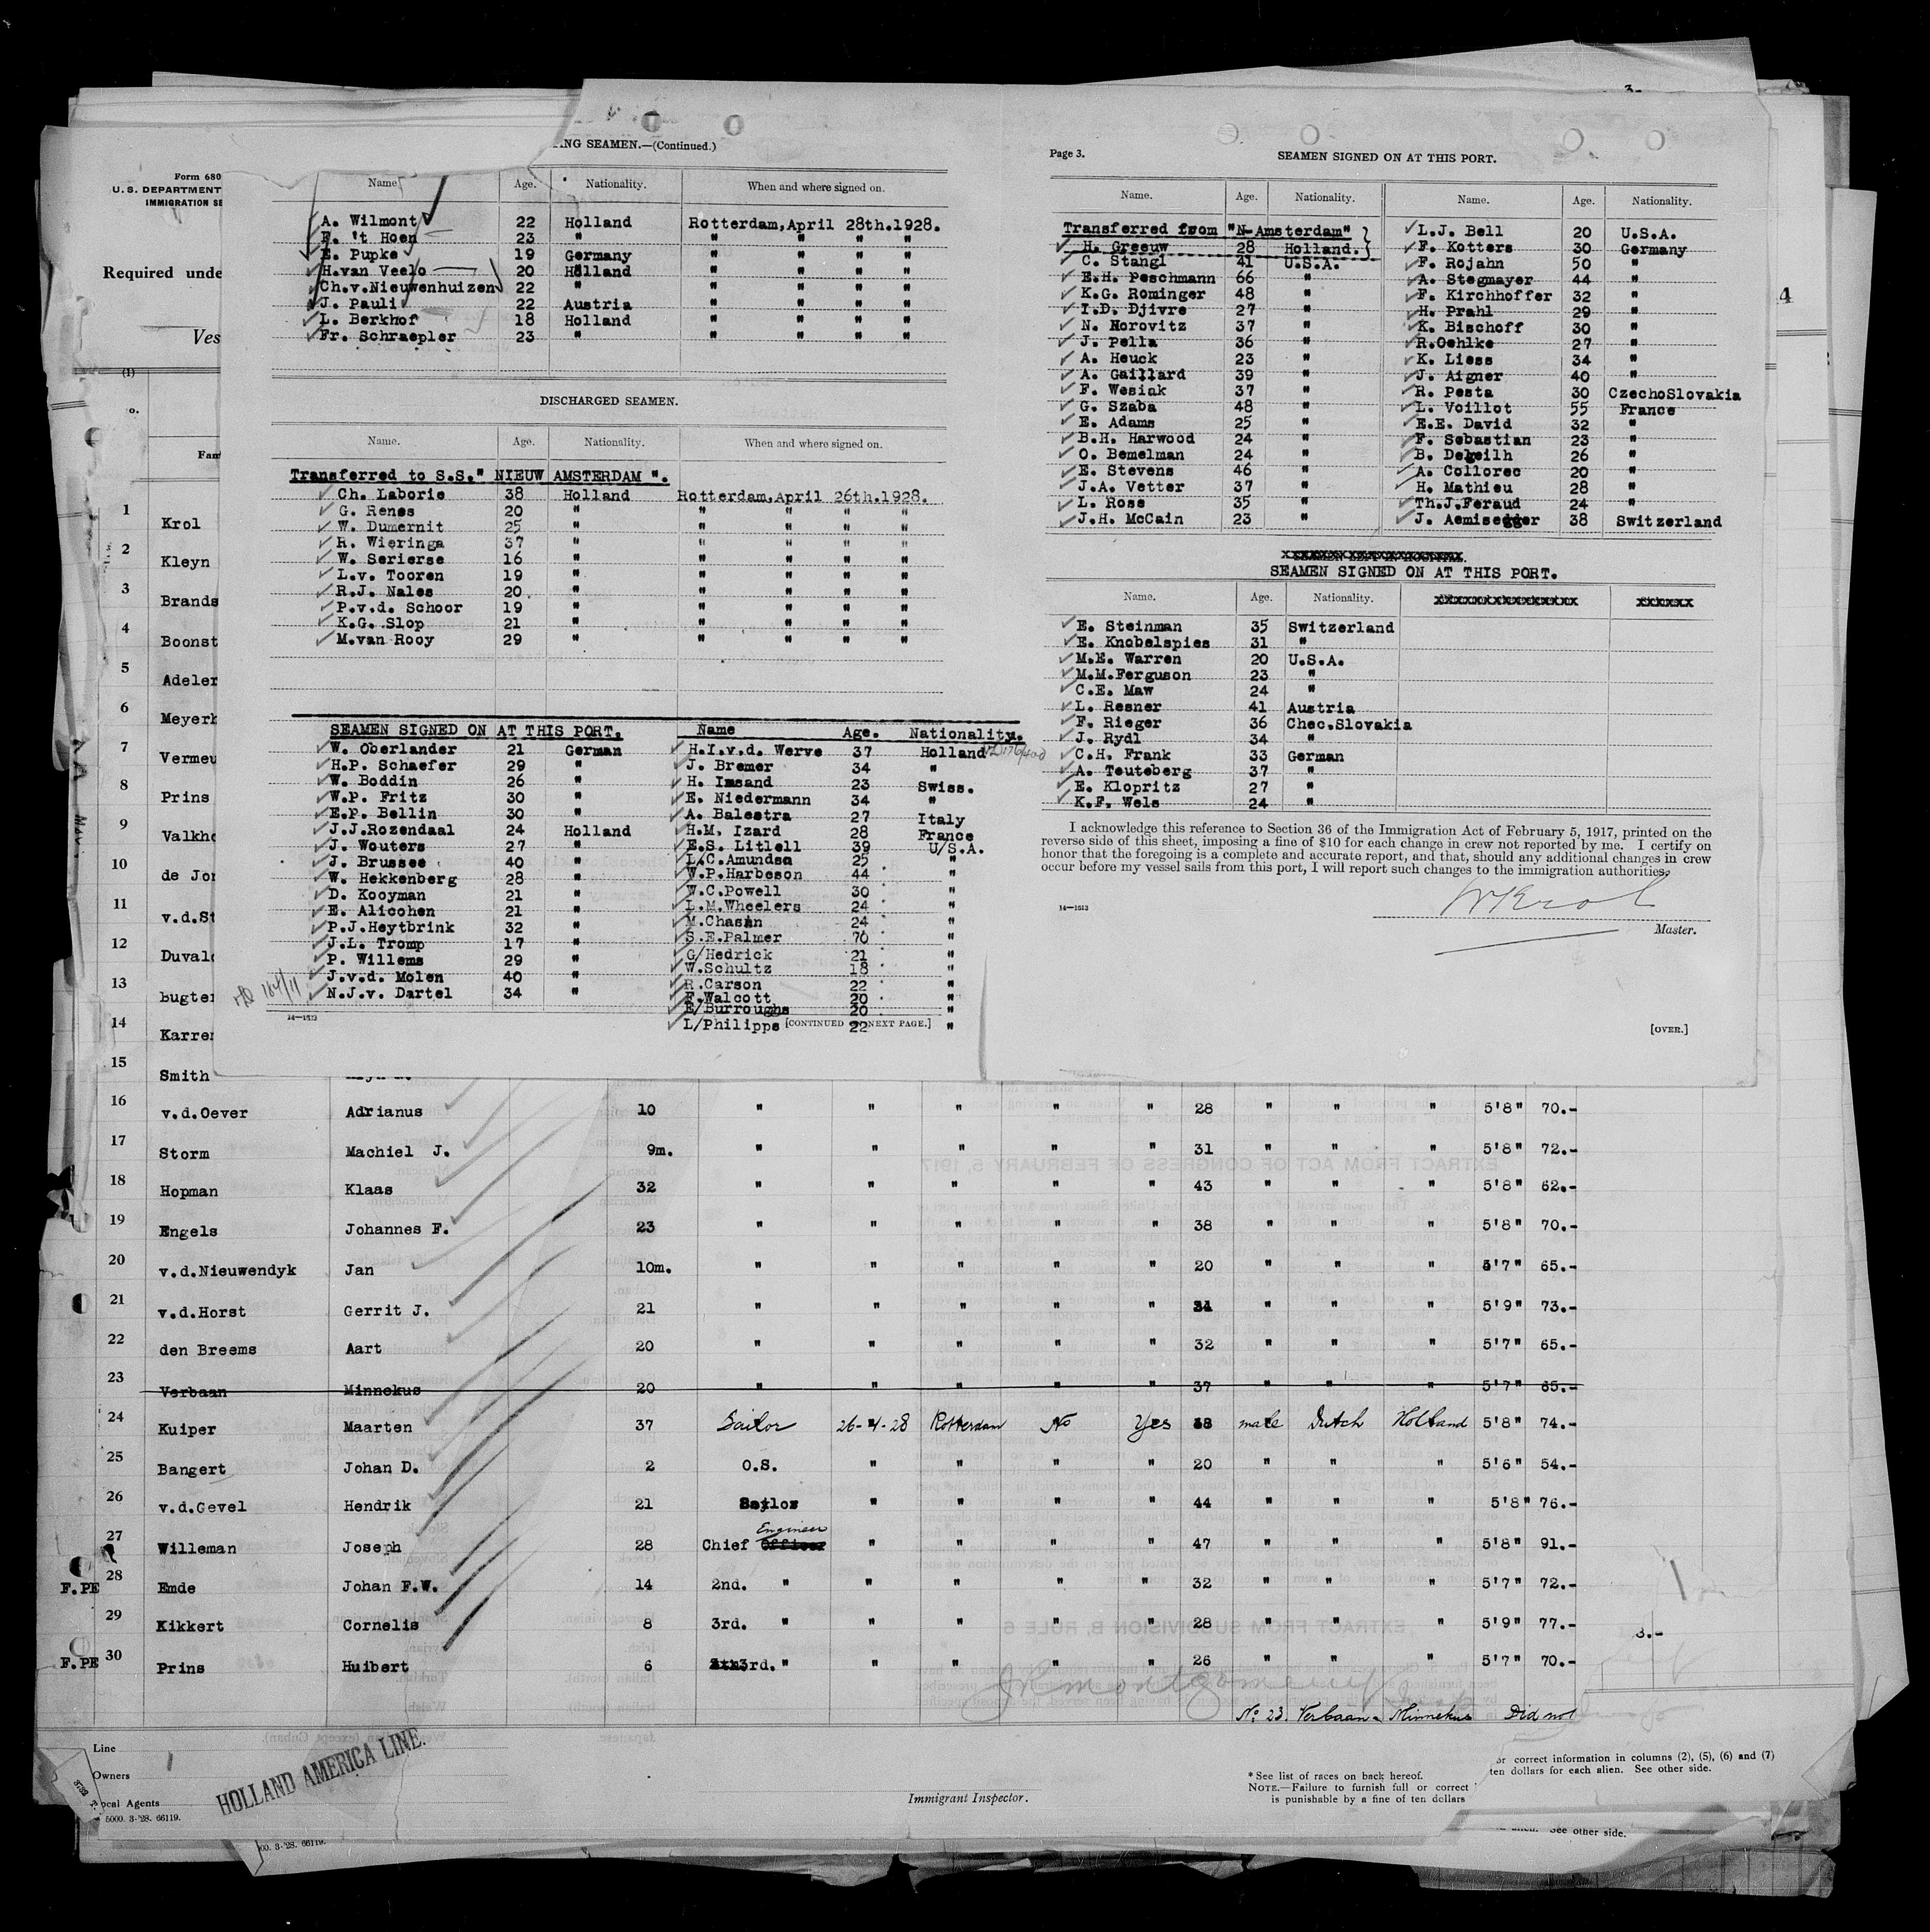 3-
Form 680
U.S. DEPARTMENT
IMMIGRATION SE
Required unde
Ves
(1)
o.
Fam
4
ING SEAMEN.—(Continued.)
Name Age. Nationality. When and where signed on.
A. Wilmont 22 Holland Rotterdam,April 28th.1928.
F. 't Hoen 23 " " " " "
E. Pupke 19 Germany " " " "
H.van Veelo 20 Holland " " " "
Ch.v.Nieuwenhuizen 22 " " " " "
J. Pauli 22 Austria " " " "
L. Berkhof 18 Holland " " " "
Fr. Schraepler 23 " " " " "
DISCHARGED SEAMEN.
Name. Age. Nationality. When and where signed on.
Transferred to S.S." NIEUW AMSTERDAM ".
Ch. Laborie 38 Holland Rotterdam,April 26th.1928.
G. Renes 20 " " " " "
W. Dumernit 25 " " " " "
R. Wieringa 37 " " " " "
W. Serierse 16 " " " " "
L.v. Tooren 19 " " " " "
R.J. Nales 20. " " " " "
P.v.d. Schoor 19 " " " " "
K.G. Slop 21 " " " " "
M.van Rooy 29 " " " " "
SEAMEN SIGNED ON AT THIS PORT. Name Age. Nationality.
W. Oberlander 21 German H.I.v.d. Werve 37 Holland
H.P. Schaefer 29 " J. Bremer 34 "
W. Boddin 26 " H. Imsand 23 Swiss.
W.P. Fritz 30 " E. Niedermann 34 "
E.P. Bellin 30 " A. Balestra 27 Italy
J.J.Rozendaal 24 Holland H.M. Izard 28 France
J. Wouters 27 " E.S. Litlell 39 U/S.A.
J. Brussee 40 " L/C.Amundsa 25 "
W. Hekkenberg 28 " W.P.Harbeson 44 "
D. Kooyman 21 " W.C.Powell 30 "
E. Alicohen 21 " L.M.Wheelers 24 "
P.J.Heytbrink 32 " M.Chasin 24 "
J.L. Tromp 17 " S.E.Palmer 70 "
P. Willems 29 " G/Hedrick 21 "
J.v.d. Molen 40 " W.Schultz 18 "
N.J.v. Dartel 34 " R.Carson 22 "
F.Walcott 20 "
E/Burroughs 20 "
L/Philipps 22 "
14—1513
[CONTINUED NEXT PAGE.]
Page 3. SEAMEN SIGNED ON AT THIS PORT.
Name. Age. Nationality. Name. Age. Nationality.
Transferred from "N-Amsterdam" L.J. Bell 20 U.S.A.
H. Greeuw 28 Holland. F. Kotters 30 Germany
C. Stangl 41 U.S.A. F. Rojahn 50 "
E.H. Peschmann 66 " A. Stegmayer 44 "
K.G. Rominger 48 " F. Kirchhoffer 32 "
I.D. Djivre 27 " H. Prahl 29 "
N. Horovitz 37 " K. Bischoff 30 "
J. Pella 36 " R.Oehlke 27 "
A. Heuck 23 " K. Liess 34 "
A. Gaillard 39 " J. Aigner 40 "
F. Wesiak 37 " R. Pesta 30 CzechoSlovakia
G. Szaba 48 " L. Voillot 55 France
E. Adams 25 " E.E. David 32 "
B.H. Harwood 24 " F. Sebastian 23 "
O. Bemelman 24 " B. Delgeilh 26 "
E. Stevens 46 " A. Collorec 20 "
J.A. Vetter 37 " H. Mathieu 28 "
L. Ross 35 " Th.J.Feraud 24 "
J.H. McCain 23 " J. Aemisegger 38 Switzerland
SEAMEN SIGNED ON AT THIS PORT.
Name. Age. Nationality.
E. Steinman 35 Switzerland
E. Knobelspies 31 "
M.E. Warren 20 U.S.A.
M.M.Ferguson 23 "
C.E. Maw 24 "
L. Resner 41 Austria
F. Rieger 36 Chec.Slovakia
J. Rydl 34 "
C.H. Frank 33 German
A. Teuteberg 37 "
E. Klopritz 27 "
K.F. Wels 24 "
I acknowledge this reference to Section 36 of the Immigration Act of February 5, 1917, printed on the
reverse side of this sheet, imposing a fine of $10 for each change in crew not reported by me. I certify on
honor that the foregoing is a complete and accurate report, and that, should any additional changes in crew
occur before my vessel sails from this port, I will report such changes to the immigration authorities.
WKrol
14—1513
Master.
[OVER.]
1 Krol
2 Kleyn
3 Brands
4 Boonst
5 Adeler
6 Meyerh
7 Vermeu
8 Prins
9 Valkho
10 de Jon
11 v.d.St
12 Duvald
13 Bugter
14 Karrem
15 Smith
16 v.d.Oever Adrianus 10 " " " " " 28 " " " 5'8" 70.-
17 Storm Machiel J. 9m. " " " " " 31 " " " 5'8" 72.-
18 Hopman Klaas 32 " " " " " 43 " " " 5'8" 62.-
19 Engels Johannes F. 23 " " " " " 38 " " " 5'8" 70.-
20 v.d.Nieuwendyk Jan 10m. " " " " " 20 " " " 5'7" 65.-
21 v.d.Horst Gerrit J. 21 " " " " " " " " 5'9" 73.-
22 den Breems Aart 20 " " " " " 32 " " " 5'7" 65.-
23 Verbaan Minnekus 20 " " " " " 37 " " " 5'7" 65.-
24 Kuiper Maarten 37 Sailor 26-4-28 Rotterdam No Yes 38 male Dutch Holland 5'8" 74.-
25 Bangert Johan D. 2 O.S. " " " " 20 " " " 5'6" 54.-
26 v.d.Gevel Hendrik 21 Sailor " " " " 44 " " " 5'8" 76.-
27 Willeman Joseph 28 Chief Engineer Officer " " " " 47 " " " 5'8" 91.-
F.PE 28 Emde Johan F.W. 14 2nd. " " " " " 32 " " " 5'7" 72.-
29 Kikkert Cornelis 8 3rd. " " " " " 28 " " " 5'9" 77.-
F.PE 30 Prins Huibert 6 3rd. " " " " " 26 " " " 5'7" 70.-
3.-
No 23. Verbaan - Minnekus Did not
Line
Owners
ocal Agents
5000. 3-'28. 66119.
HOLLAND AMERICA LINE.
Immigrant Inspector.
* See list of races on back hereof.
NOTE.—Failure to furnish full or correct
is punishable by a fine of ten dollars
or correct information in columns (2), (5), (6) and (7)
ten dollars for each alien. See other side.
00. 3-'28. 66119.
See other side.